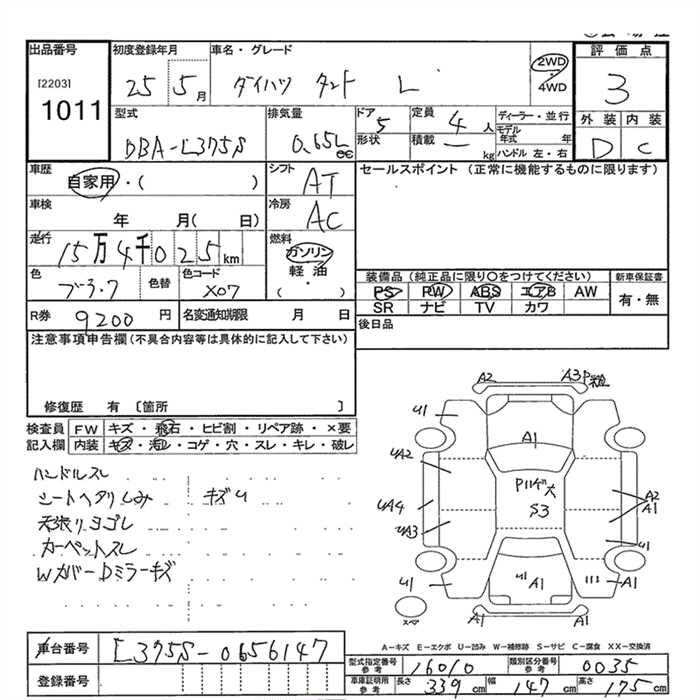 出品番号 初度登録年月 車名・グレード 評価点
[2203]
1011
25 5月 ダイハツ タント L 2WD・4WD 3
型式 排気量 ドア 定員 ディーラー・並行 外装 内装
DBA-L375S 0.65L cc 5 4人 モデル年式 年 D C
形状 積載 ー kg ハンドル 左・右
車歴 シフト セールスポイント (正常に機能するものに限ります)
自家用・( ) AT
車検 冷房
年 月( 日) AC
走行 燃料
15万4千025km ガソリン・軽油・( )
色 色替 色コード 装備品 (純正品に限り○をつけてください) 新車保証書
X07 PS PW ABS エアB AW 有・無
SR ナビ TV カワ
R券 9200円 名変通知期限 月 日 後日品
注意事項申告欄(不具合内容等は具体的に記入して下さい)
修復歴 有 〔箇所 〕
検査員 FW キズ・飛石・ヒビ割・リペア跡・×要
記入欄 内装 キズ・汚レ・コゲ・穴・スレ・キレ・破レ
ハンドルスレ
シートヘタリしみ キズU
天張りヨゴレ
カーペットスレ
WカバーDミラーキズ
A2 A3P
U1 A1
UA2
P S3
UA4 A2
A1
UA3
U1
U1 U1 A1 A1
スペア A1
A-キズ E-エクボ U-凹み W-補修跡 S-サビ C-腐食 XX-交換済
車台番号 L375S-0656147
登録番号
型式指定番号 参考 16010 類別区分番号 参考 0035
車庫証明用 参考 長さ 339cm 幅 147cm 高さ 175cm